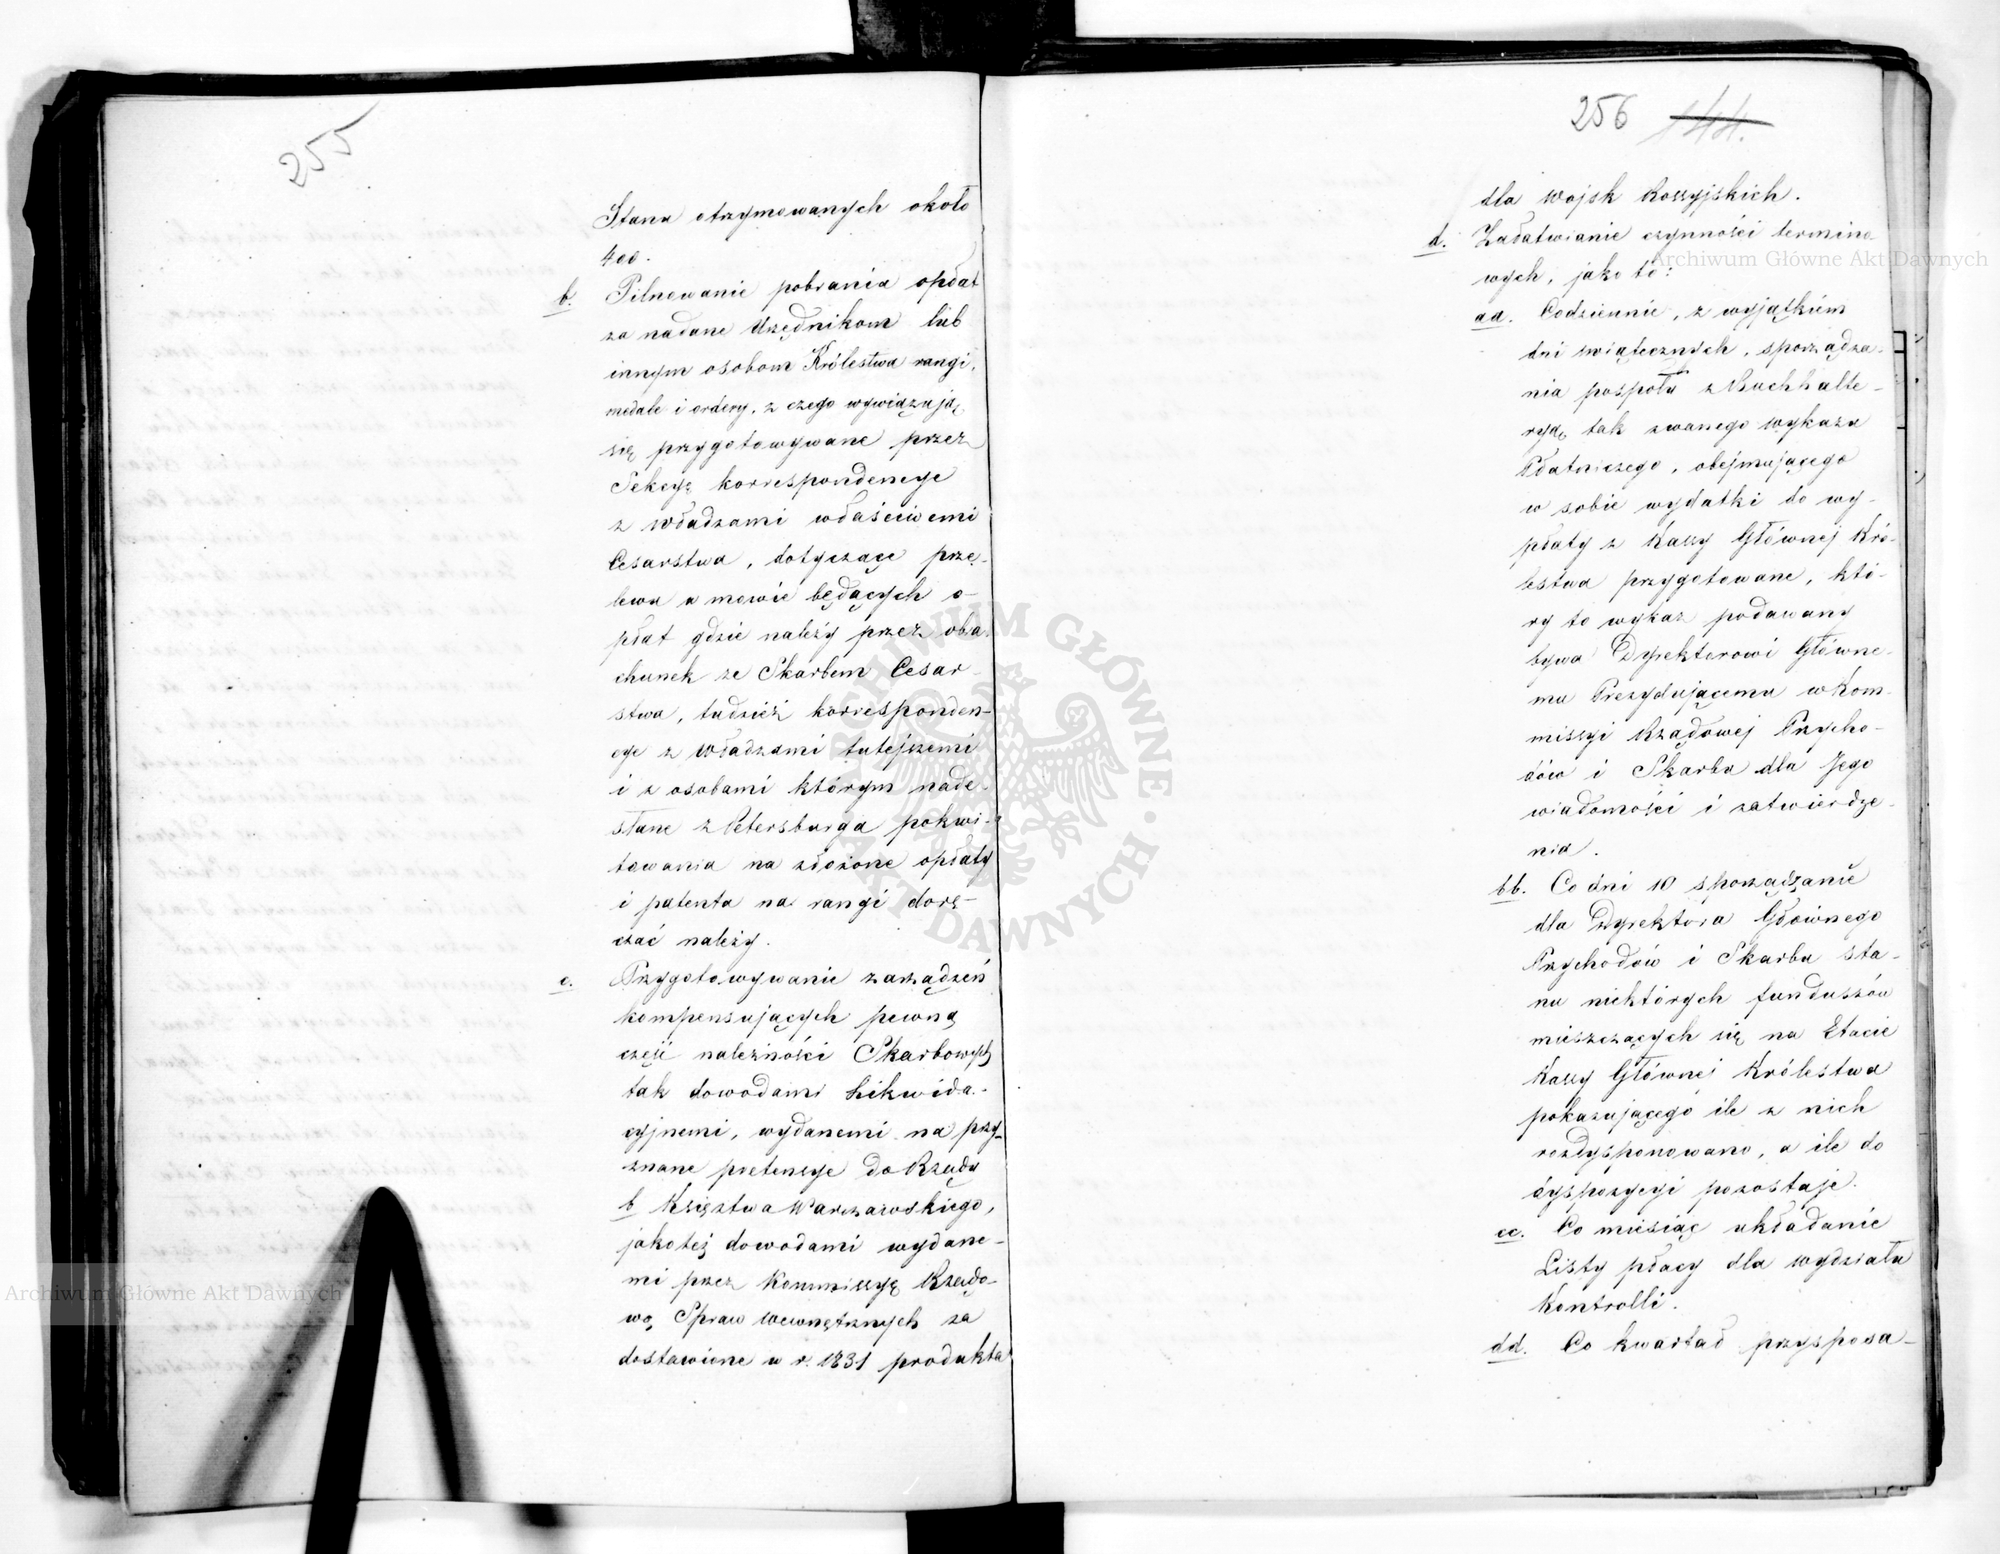 255
Stanu otrzymowanych około
400.
b. Pilnowanie pobrania opłat
za nadane Urzędnikom lub
innym osobom Królestwa rangi,
medale i ordery, z czego wywiązują
się przygotowywane przez
Sekcyę korrespondencye
z władzami właściwemi
Cesarstwa, dotyczące prze-
lewu w mowie będących o-
płat gdzie należy przez obra-
chunek ze Skarbem Cesar-
stwa, tudzież korresponden-
cye z władzami tutejszemi
i z osobami którym nade-
słane z Petersburga pokwi-
towania na złożone opłaty
i patenta na rangi dorę-
czać należy.
c. Przygotowywanie zarządzeń
kompensujących pewną
część należności Skarbowych
tak dowodami Likwida-
cyjnemi, wydanemi na przy-
znane pretensye do Rządu
b Księztwa Warszawskiego,
jakoteż dowodami wydane-
mi przez Kommissyę Rządo-
wą Spraw Wewnętrznych za
dostawione w r. 1831 produkta
256 144.
dla wojsk Rossyjskich.
d. Załatwianie czynności termino-
wych, jako to:
aa. Codziennie, z wyjątkiem
dni świątecznych, sporządza-
nia pospołu z Buchhalte-
ryą tak zwanego wykazu
Płatniczego, obejmującego
w sobie wydatki do wy-
płaty z Kassy Głównej Kró-
lestwa przygotowane, któ-
ry to wykaz podawany
bywa Dyrektorowi Główne-
mu Prezydującemu w Kom-
missyi Rządowej Przycho-
dów i Skarbu dla Jego
wiadomości i zatwierdze-
nia.
bb. Co dni 10 sporządzanie
dla Dyrektora Głównego
Przychodów i Skarbu sta-
nu niektórych funduszów
mieszczących się na Etacie
Kassy Głównej Królestwa
pokazującego ile z nich
rozdysponowano, a ile do
dyspozycyi pozostaje.
cc. Co miesiąc układanie
Listy płacy dla wydziału
Kontrolli.
dd. Co kwartał przysposa-
Archiwum Główne Akt Dawnych
Archiwum Główne Akt Dawnych
ARCHIWUM GŁÓWNE AKT DAWNYCH